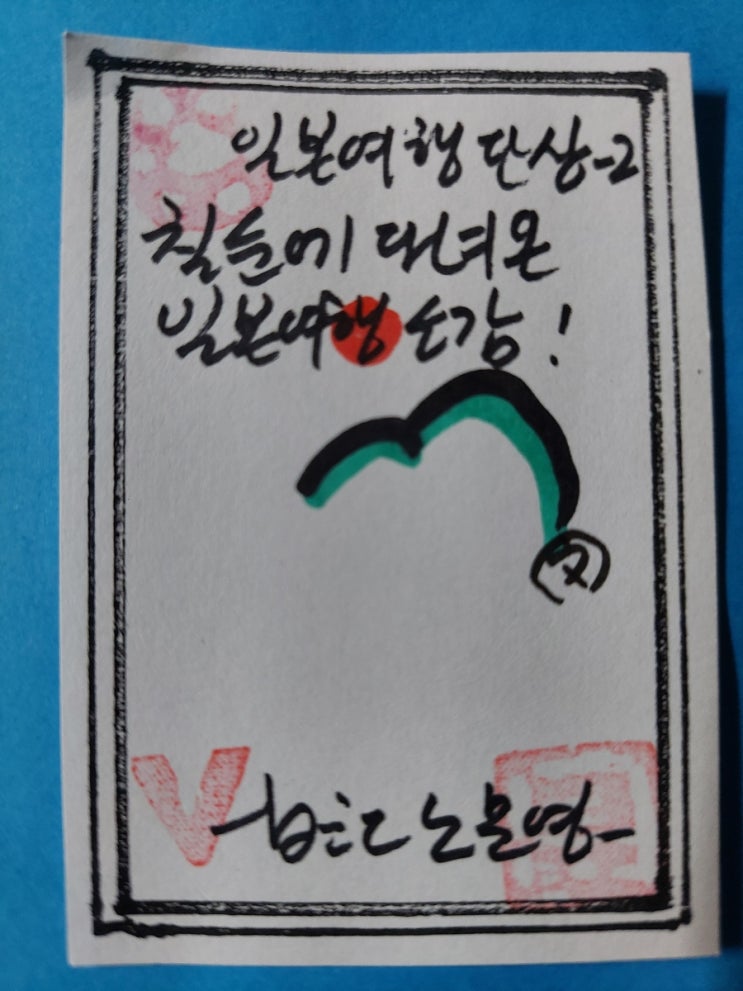 일본여행 단상-2
칠순에 다녀온
일본여행 소감!
文
노문영-